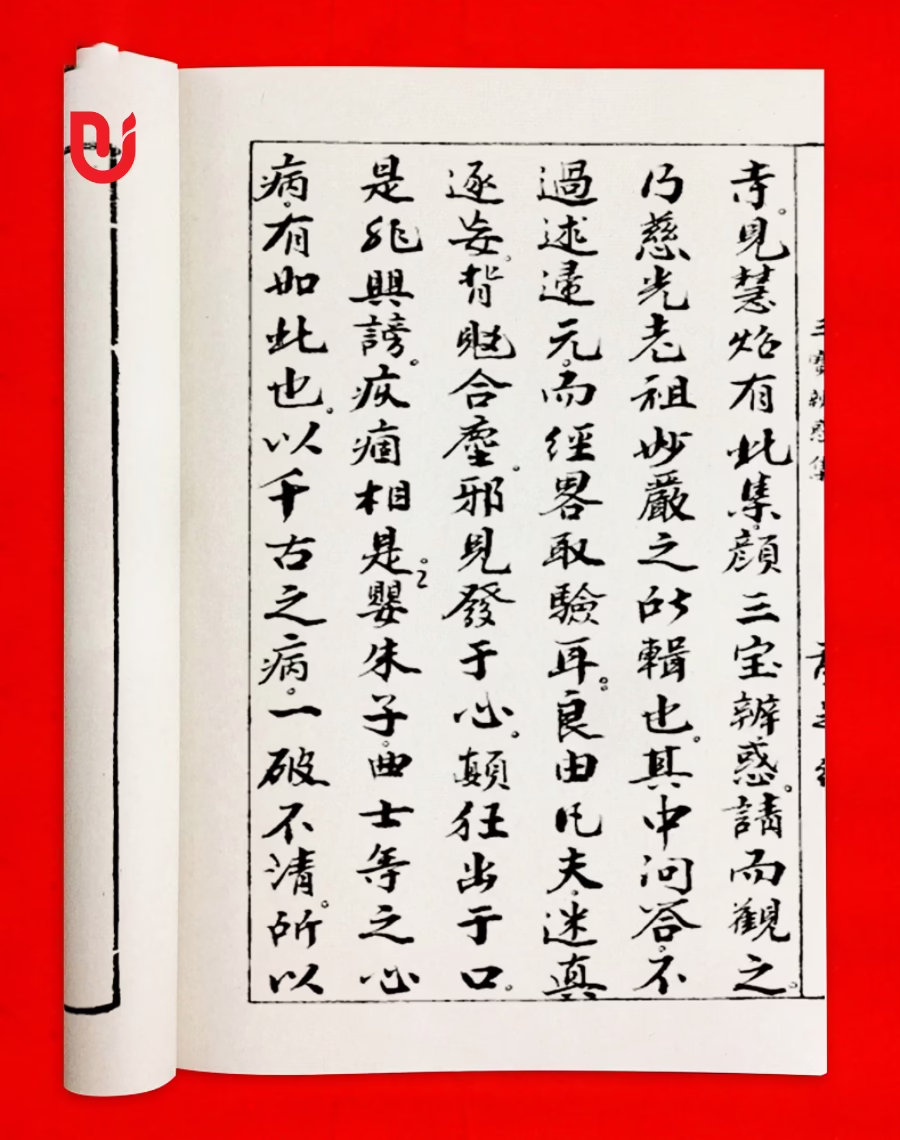 三寶辨惑集
寺。見慧焰有此集。顔三宝辨惑。請而觀之。
乃慈光老祖妙嚴之所輯也。其中问荅。不
過述還元。而經畧取驗耳。良由凡夫。迷真
逐妄。背覺合塵。邪見發于心。顛狂出于口。
是非興謗。疾痼相是。嬰朱子。曲士等之心
病。有如此也。以千古之病。一破不清。所以